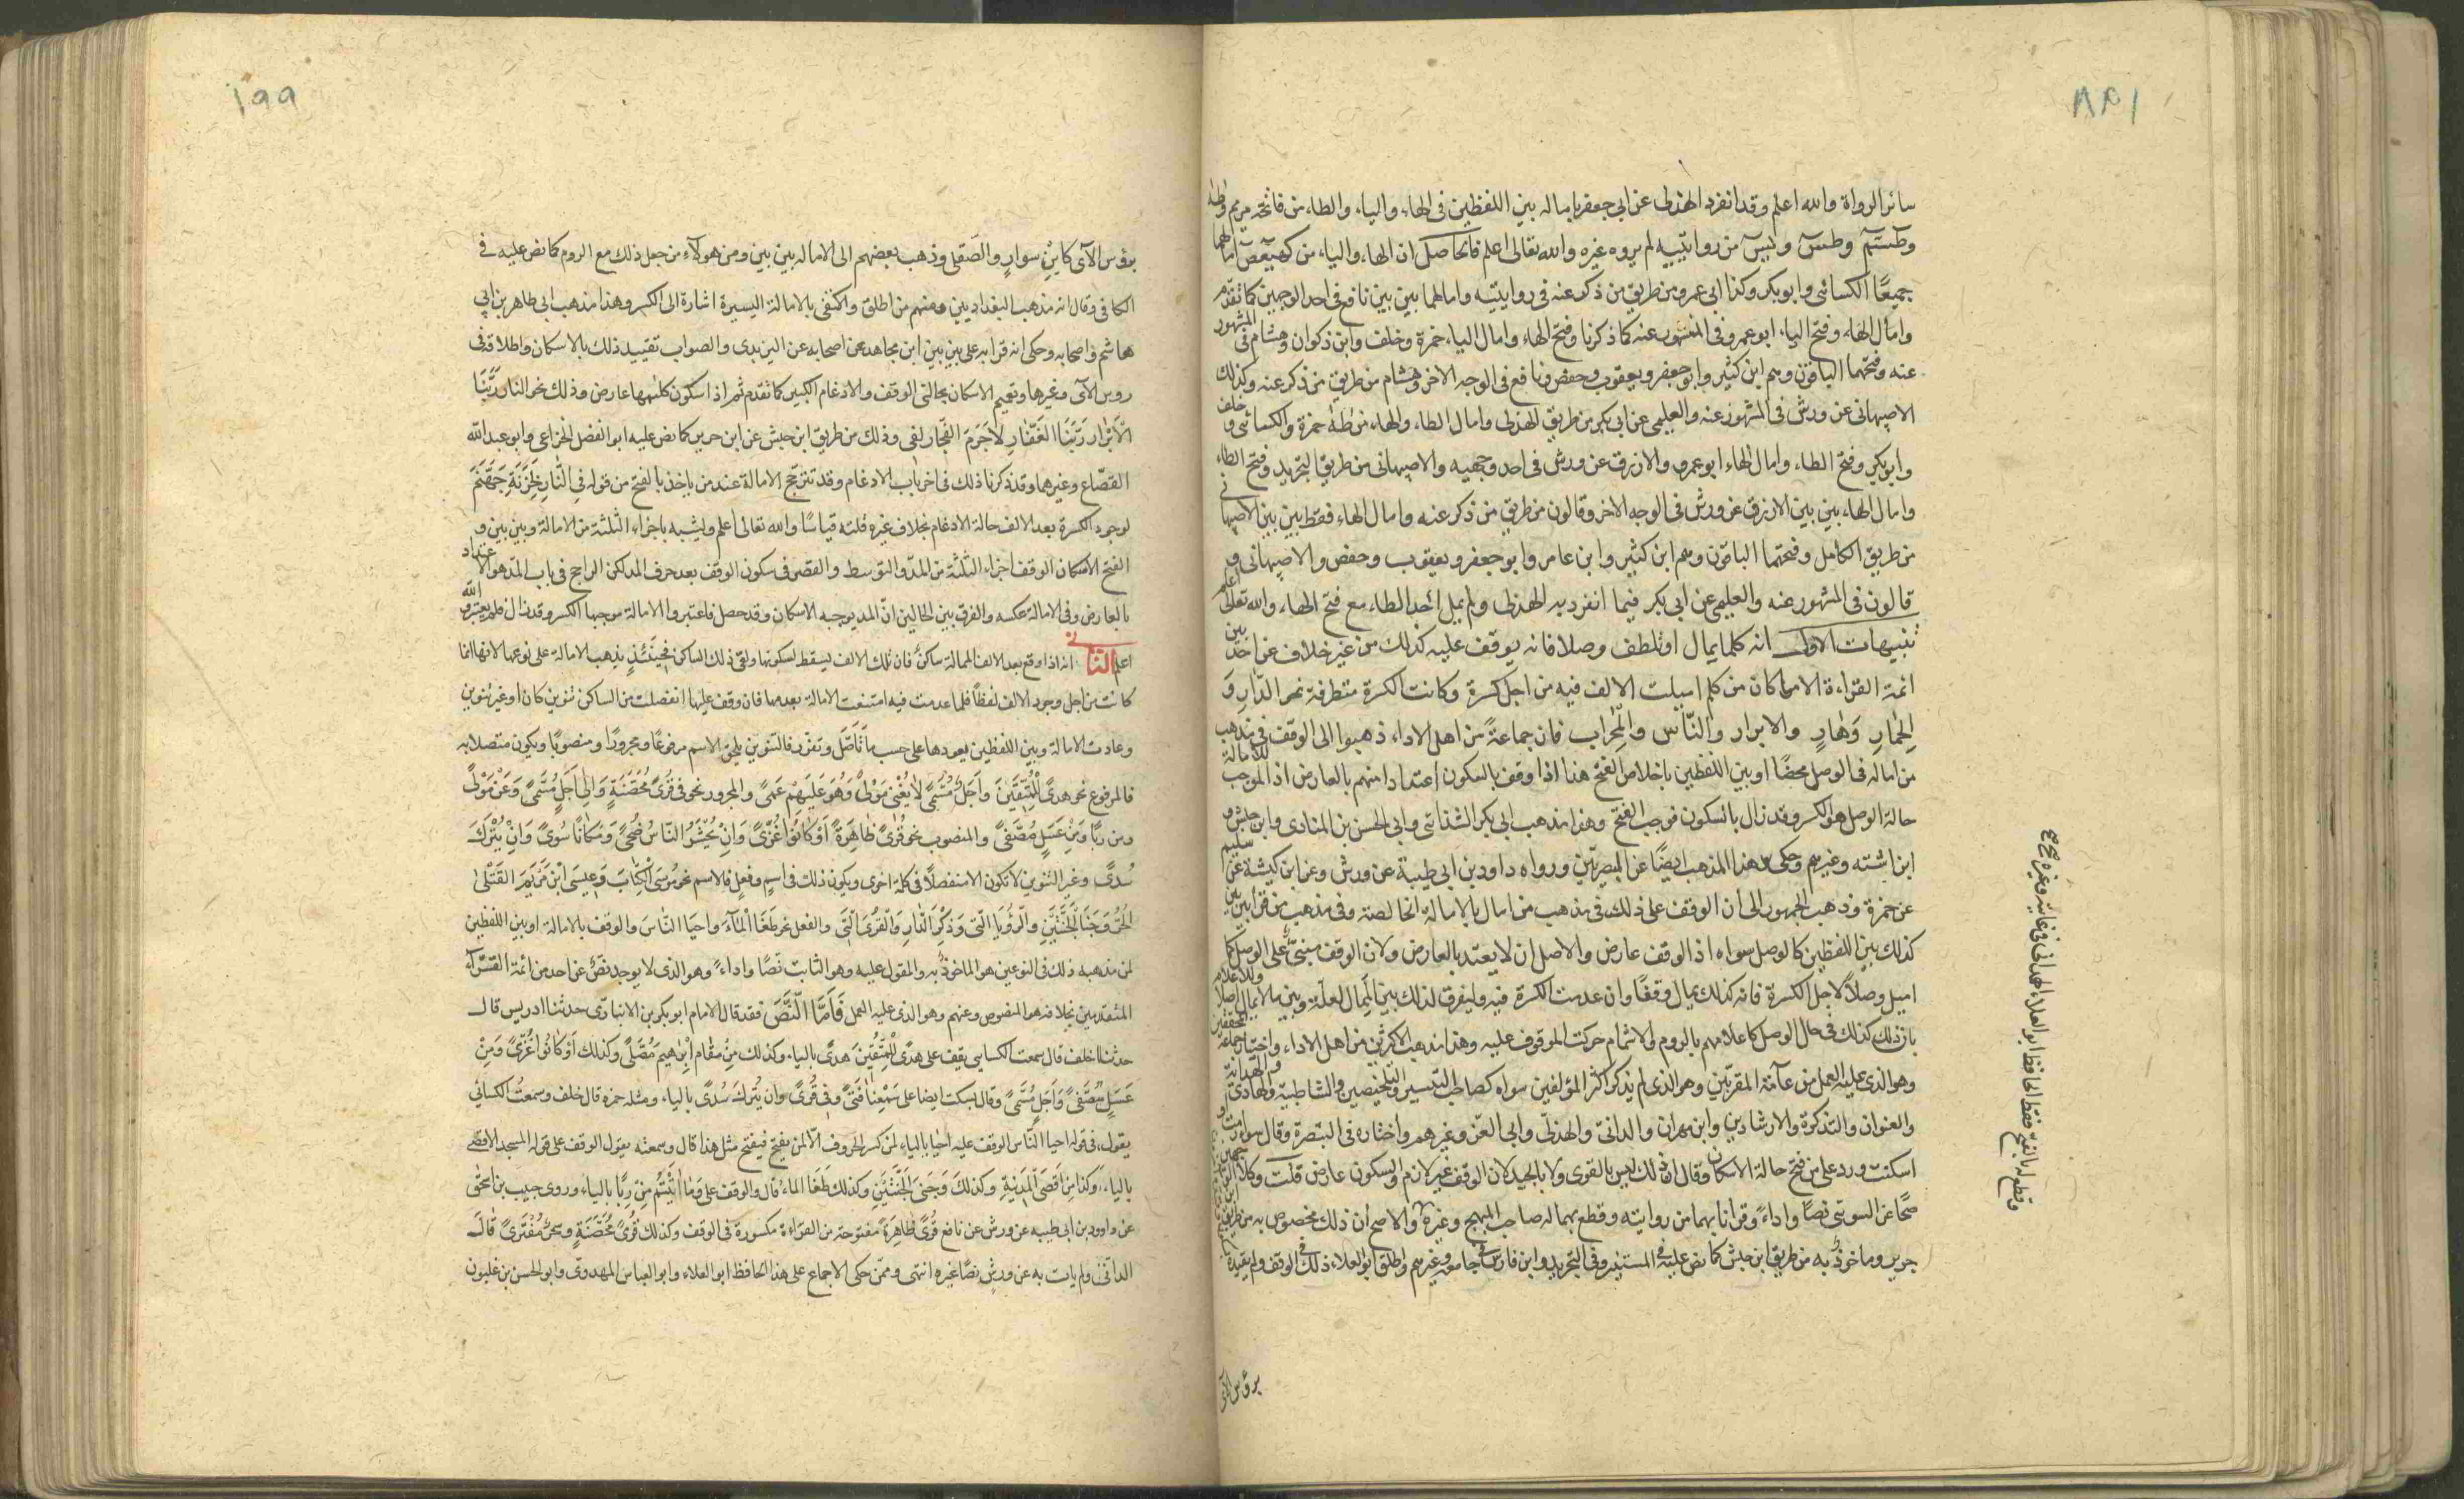 سائر الرواة والله اعلم وقد انفرد الهذلى عن ابى جعفر باماله بين اللفظين فى الهاء والياء والطاء من فاتحة مريم وطه
وطسم وطس ويس من روايتيه لم يروه غيره والله تعالى اعلم فالحاصل ان الهاء والياء من كهيعص امالهما
جميعًا الكسائى وابو بكر وكذا ابى عمرو من طريق من ذكر عنه فى روايتيه وامالهما بين بين نافع فى احد الوجهين كما تقدم
وامال الهاء وفتح الياء ابو عمرو فى المشهور عنه كما ذكرنا وفتح الهاء وامال الياء حمزة وخلف وابن ذكوان وهشام فى المشهور
عنه وفتحهما الباقون وهم ابن كثير وابو جعفر ويعقوب وحفص ونافع فى الوجه الاخر وهشام من طريق من ذكر عنه وكذلك
الاصبهانى عن ورش فى المشهور عنه والعليمى عن ابى بكر من طريق الهذلى وامال الطاء والهاء من طه حمزة والكسائى وخلف
وابو بكر وفتح الطاء وامال الهاء ابو عمرو والازرق عن ورش فى احد وجهيه والاصبهانى من طريق التجريد وفتح الطاء
وامال الهاء بين بين الازرق عن ورش فى الوجه الاخر وقالون من طريق من ذكر عنه وامال الهاء فقط بين بين الاصبهانى
من طريق الكامل وفتحتما الباقون وهم ابن كثير وابن عامر وابو جعفر ويعقوب وحفص والاصبهانى و
قالون فى المشهور عنه والعليمى عن ابى بكر فيما انفرد به الهذلى ولم يمل احد الطاء مع فتح الهاء والله تعالى اعلم
تنبيهات الاولى انه كلما يمال او يلطف وصلا فانه يوقف عليه كذلك من غير خلاف عن احد من
ائمة القراءة الا ما كان من كلم اميلت الالف فيه من اجل كسرة وكانت الكسرة متطرفة نحو الدّارِ وَ
الحِمَارِ وَهَارٍ والابرار والنّاس والمِحراب فان جماعةً من اهل الاداء ذهبوا الى الوقف فى مذهب
من اماله فى الوصل محضًا او بين اللفظين باخلاص الفتح هذا اذا وقف بالسكون اعتدادا منهم بالعارض اذ الموجب للامالة
حالة الوصل هو الكسر وقد زال بالسكون فوجب الفتح وهذا مذهب ابى بكر الشذائى وابى الحسن بن المنادى وابن حبش و
ابن اشته وغيرهم وحكى هذا المذهب ايضًا عن البصريّين ورواه داود بن ابى طيبة عن ورش وعن ابن كيشة عن سليم
عن حمزة وذهب الجمهور الى أن الوقف على ذلك فى مذهب من امال بالامالة الخالصة وفى مذهب من قرأ بين بين
كذلك بين اللفظين كالوصل سواه اذ الوقف عارض والاصل ان لا يعتد بالعارض ولان الوقف مبنىّ على الوصل كما
اميل وصلاً لاجل الكسرة فانه كذلك يمال وقفًا وان عدمت الكسرة فيه وليفرق لذلك بين المِمال لعلّة وبين ما لا يمال اصلا وللاعلام
بان ذلك كذلك فى حال الوصل كاعلامهم بالروم والاشمام حركت الموقوف عليه وهذا مذهب الاكثرين من اهل الاداء واختيار جماعة المحققين
وهو الذى عليه العمل من عامّة المقرئين وهو الذى لم يذكر اكثر المؤلفين سواه كصاحب التيسير والتلخيصين والشاطبية والهادى والهداية
والعنوان والتذكرة والارشادين وابن مهران والدانى والهذلى وابى العز وغيرهم واختاره فى التبصرة وقال سواء رمت او
اسكنت ورد على من فتح حالة الاسكان وقال ان ذلك ليس بالقوى ولا بالجيد لان الوقف غير لازم والسكون عارض قلت وكلا الوجهين
صحّا عن السوسى نصًا واداءً وقرأنا بهما من روايته وقطع بهما له صاحب المبهج وغيره والاصح ان ذلك مخصوص به من طريق ابن
جرير وماخوذٌ به من طريق ابن حبش كما نص عليه فى المستنير وفى التجريد وابن فارس فى جامعه وغيرهم واطلق ابو العلاء ذلك فى الوقف ولم يقيده
وقطع له بالفتح فقط الحافظ ابو العلاء الهمدانى فى غايته وغيره صح صح
برؤس الآى
١٩٩
برؤس الآى كابنِ سوارٍ والصَّقلى وذهب بعضهم الى الاماله بين بين ومن هولاء من جعل ذلك مع الروم كما نص عليه فى
الكافى وقال انه مذهب البغداديين ومنهم من اطلق واكتفى بالامالة اليسيرة اشارة الى الكسر وهذا مذهب ابى طاهر بن ابى
هاشم واصحابه وحكى انه قرا به على بين بين ابن مجاهد عن اصحابه عن اليزيدى والصواب تقييد ذلك بالاسكان واطلاقه فى
روس الآى وغيرها وتعميم الاسكان بحالتى الوقف والادغام الكبير كما تقدم ثم اذا سكون كليهما عارض وذلك نحو النار رَبَّنَا
الأَبْرَار رَبَّنَا الغَفَّارِ لَاجَرَمَ الفُجَّارِ لفى وذلك من طريق ابن حبش عن ابن جرير كما نص عليه ابو الفضل الخزاعى وابو عبد الله
القصّاع وغيرهما وقد ذكرنا ذلك فى اخر باب الادغام وقد تترجّح الامالة عند من ياخذ بالفتح من قوله فِى النَّارِ لِخَزَنَةِ جَهَنَّمَ
لوجود الكسرة بعد الالف حالة الادغام بخلاف غيره قلته قياسًا والله تعالى اعلم ويشبه باجراء الثلثة من الامالة وبين بين و
الفتح لاسكان الوقف اجراء الثلثة من المدّ والتوسط والقصر فى سكون الوقف بعد حرف المد لكن الراجح فى باب المدّ هو الاعتداد
بالعارض وفى الامالة عكسه والفرق بين الحالين انّ المد يوجبه الاسكان وقد حصل فاعتبر والامالة موجبها الكسر وقد زال فلم يعتبر والله
اعلم الثانى انه اذا وقع بعد الالف الممالة ساكنٌ فان تلك الالف يسقط لسكونها ولقى ذلك الساكن فحينئذٍ يذهب الامالة على نوعيها لانها انما
كانت من اجل وجود الالف لفظًا فلما عدمت فيه امتنعت الامالة بعدمها فان وقف عليها انفصلت من الساكن تنوين كان او غير تنوين
وعادت الامالة وبين اللفظين يعودها على حسب ما تَاَصَّلَ وتقرّر فالتنوين يلحق الاسم مرفوعًا ومجرورًا ومنصوبًا ويكون متصلا به
فالمرفوع نحو هدًى لِلْمُتَّقِيْنَ وَاَجَلٌ مُسَمًّى لَا يُغْنِى مَوْلًى وَهُوَ عَلَيْهِمْ عَمًى والمجرور نحو فى قُرًى مُحَصَّنَةٍ وَاِلٰى اَجَلٍ مُسَمًّى وَعَنْ مَوْلًى
ومن رِبًّا وَمِنْ عَسَلٍ مُصَفًّى والمنصوب نحو قُرًى ظَاهِرَةً اَوْ كَانُوْا غُزًّى وَاَنْ يُحْشَرَ النَّاسُ ضُحًى وَمَكَانًا سُوًى وَاَنْ يُتْرَكَ
سُدًى وغير التنوين لا تكون الا منفصلًا فى كلمة اخرى ويكون ذلك فى اسمٍ وفعلٍ فالاسم نحو مُوسَى الْكِتَابَ وَعِيسَى ابْنَ مَرْيَمَ القَتْلَى
الْحُرُّ وَجَنَا الْجَنَّتَيْنِ وَالرُّؤْيَا الَّتِى وَذِكْرَى الدَّارِ وَالْقُرَى الَّتِى والفعل نحو طَغَا الْمَآءُ واحيَا النَّاسَ والوقف بالامالة او بين اللفظين
لمن مذهبه ذلك فى النوعين هو الماخوذ به والمقول عليه وهو الثابت نصًّا واداءً وهو الذى لا يوجد نصٌّ عن احد من ائمة القرّاء
المتقدمين بخلافه هو المنصوص وعنهم وهو الذى عليه العمل فَأَمَّا النَّصَ فقد قال الامام ابو بكر بن الانبارى حدثنا ادريس قال
حدثنا خلف قال سمعت الكسايى يقف على هدًى لِّلْمُتَّقِيْنَ هدًى بالياء وكذلك مِنْ مَقَامِ اِبْرٰهِيْمَ مُصَلًّى وكذلك اَوْ كَانُوا غُزًّى وَمِنْ
عَسَلٍ مُصَفًّى وَاَجَلٍ مُسَمًّى وقال يسكت ايضا على سَمِعْنَا فَتًى وفِى قُرًى وان يُتْرَكَ سُدًى بالياء ومثله حمزه قال خلف وسمعت الكسائى
يقول فى قوله احيا النّاس الوقف عليه احْيَا بالياء لمن كسر الحروف الّا لمن يفتح فيفتح مثل هذا قال وسمعته يقول الوقف على قوله المسجد الاقصى
بالياء وكذا مِنْ اَقْصَى الْمَدِينَةِ وكذلك وَجَنَى الْجَنَّتَيْنِ وكذلك طَغَا الماء قال والوقف على وَمَا اٰتَيْتُمْ مِنْ رِبًّا بالياء وروى حبيب بن اسحق
عن داود بن ابى طيبه عن ورش عن نافع قُرًى ظَاهِرَةً مفتوحة من القراءة مكسورة فى الوقف وكذلك قُرًى مُحَصَّنَةٍ وسحرٌ مُفْتَرًى قَالَ
الدانى ولم يات به عن ورش نصًا غيره انتهى وممن حكى الاجماع على هذا الحافظ ابو العلاء وابو العباس المهدوى وابو الحسن بن غلبون